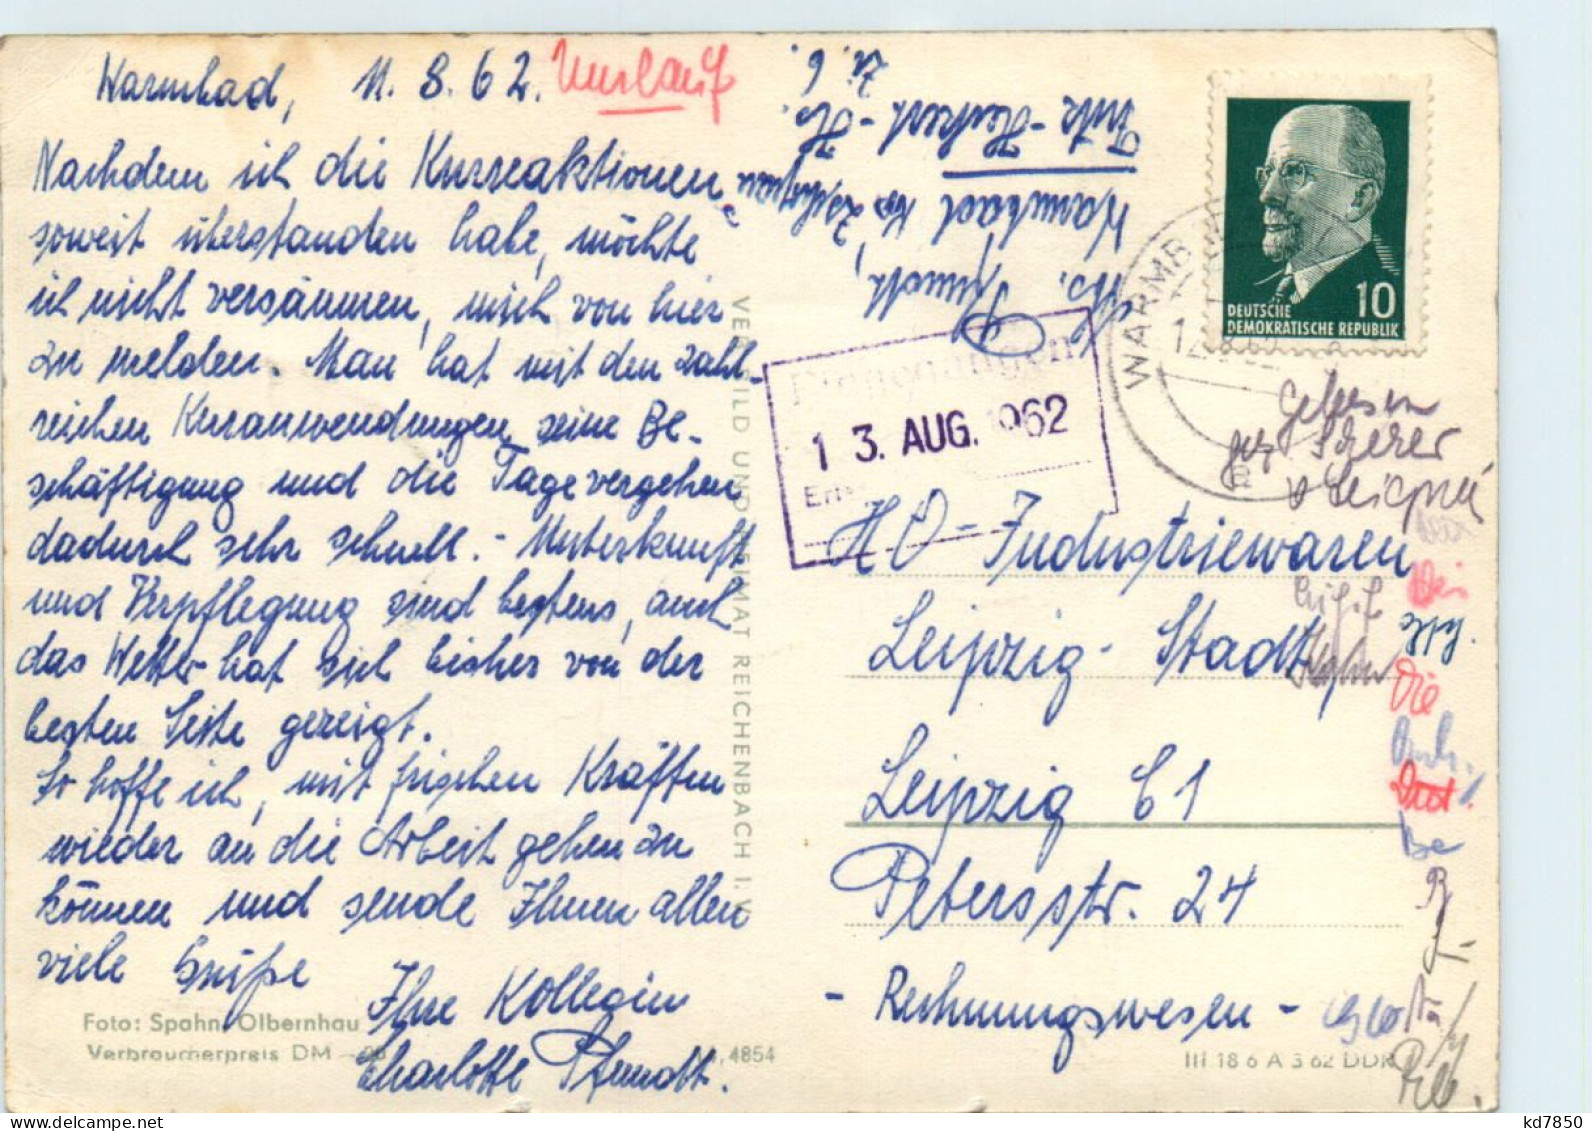 Warmbad, 11.8.62.
Umlauf
Nachdem ich die Kurreaktionen
soweit überstanden habe, möchte
ich nicht versäumen, mich von hier
zu melden. Man hat mit den zahl-
reichen Kuranwendungen seine Be-
schäftigung und die Tage vergehen
dadurch sehr schnell. - Unterkunft
und Verpflegung sind bestens, auch
das Wetter hat sich bisher von der
besten Seite gezeigt.
So hoffe ich, mit frischen Kräften
wieder an die Arbeit gehen zu
können und sende Ihnen allen
viele Grüße
Ihre Kollegin
Charlotte Pfundt.
Foto: Spahn, Olbernhau
Verbraucherpreis DM
4854
VERLAG BILD UND HEIMAT REICHENBACH I. V.
Abs. Pfundt,
Warmbad Kr. Zschopau
Fritz-Heckert-Hs.
Zi. 6
WARMB
DEUTSCHE
DEMOKRATISCHE REPUBLIK
10
Eingegangen
13. AUG. 1962
gelesen
gez Scherer
HO-Industriewaren
Leipzig-Stadt
Leipzig C1
Petersstr. 24
- Rechnungswesen -
Die
Be
III 18 6 A 3 62 DDR
kd7850